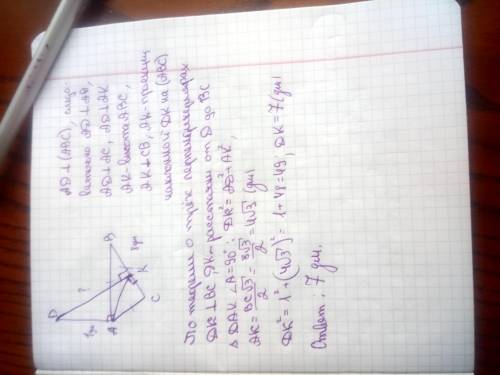 AD ⊥ (ABC), следо-
вательно AD ⊥ AB,
AD ⊥ AC, AD ⊥ AK.
AK - высота ABC,
AK ⊥ CB, AK - проекция
наклонной DK на (ABC)
D
?
1дм
A
B
8дм
K
C
По теореме о трёх перпендикулярах
DK ⊥ BC DK - расстояние от D до BC
△ DAK ∠A = 90°: DK² = AD² + AK²,
AK = BC√3/2 = 8√3/2 = 4√3 (дм)
DK² = 1² + (4√3)² = 1 + 48 = 49; DK = 7 (дм)
Ответ: 7 дм.